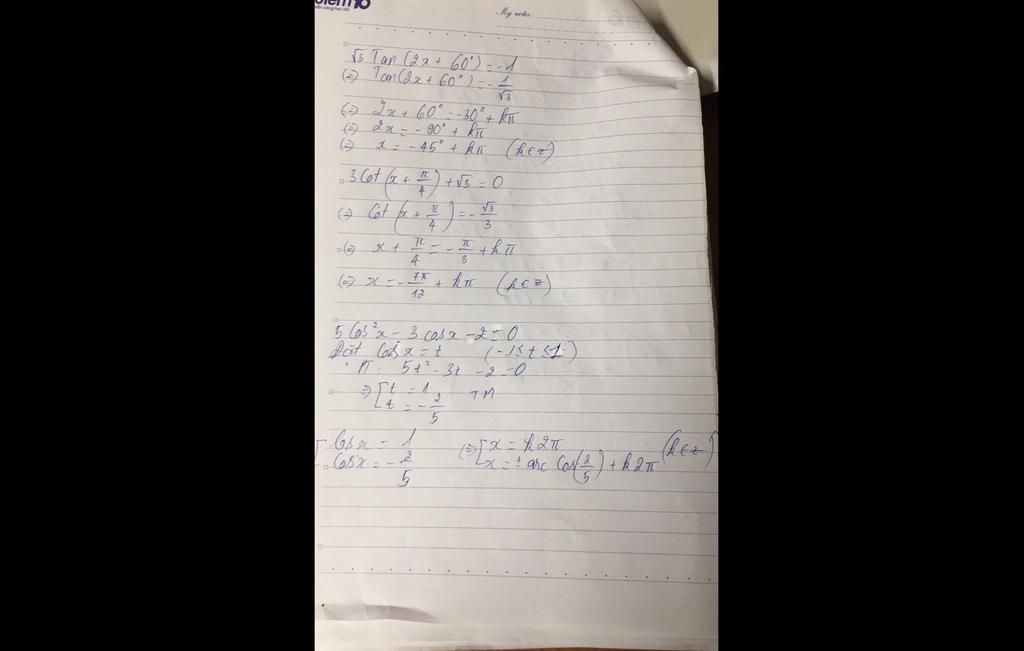 My notes:
√3 Tan(2x + 60°) = -1
(=) Tan(2x + 60°) = -1/√3
(=) 2x + 60° = -30° + kπ
(=) 2x = -90° + kπ
(=) x = -45° + kπ (k∈z)
3Cot(x + π/4) + √3 = 0
(=) Cot(x + π/4) = -√3/3
(=) x + π/4 = -π/3 + kπ
(=) x = -7π/12 + kπ (k∈z)
5 Cos²x - 3 cosx - 2 = 0
Đặt Cosx = t (-1 ≤ t ≤ 1)
PT: 5t² - 3t - 2 = 0
=> [t = 1 TM
t = -2/5
[Cosx = 1 (=) [x = k2π (k∈z)
Cosx = -2/5 x = ± arc Cos(2/5) + k2π